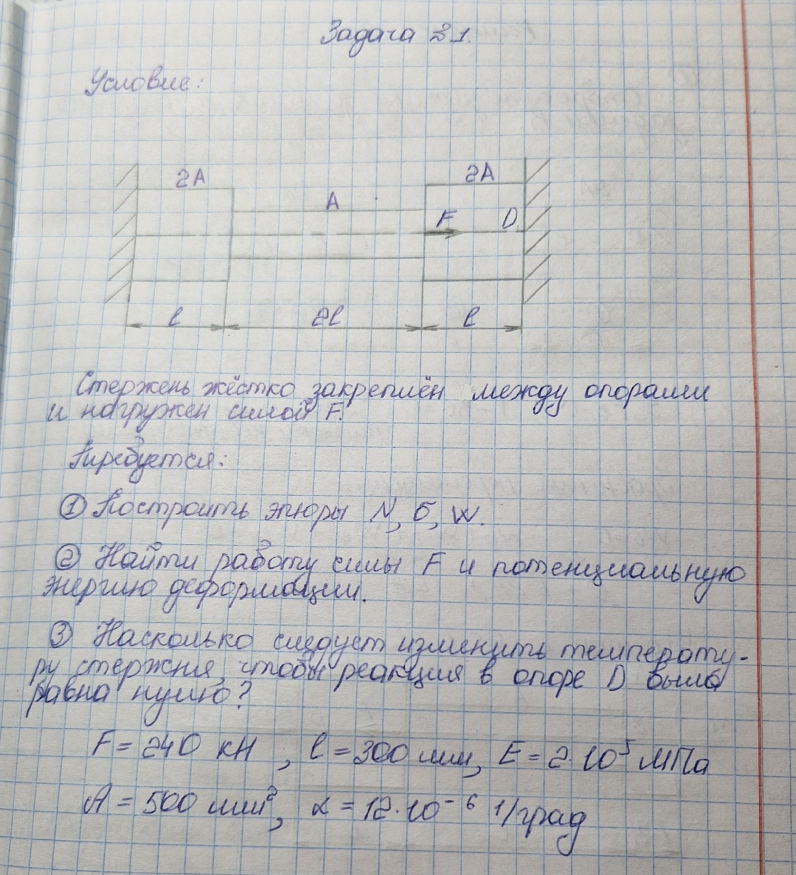 Задача 21.
Условие:
2A 2A
A
F D
l 2l l
Стержень жёстко закреплён между опорами
и нагружен силой F.
Требуется:
① Построить эпюры N, σ, W.
② Найти работу силы F и потенциальную
энергию деформации.
③ Насколько следует изменить температу-
ру стержня, чтобы реакция в опоре D была
равна нулю?
F = 240 кН, l = 300 мм, E = 2·10⁵ МПа
A = 500 мм², α = 12·10⁻⁶ 1/град